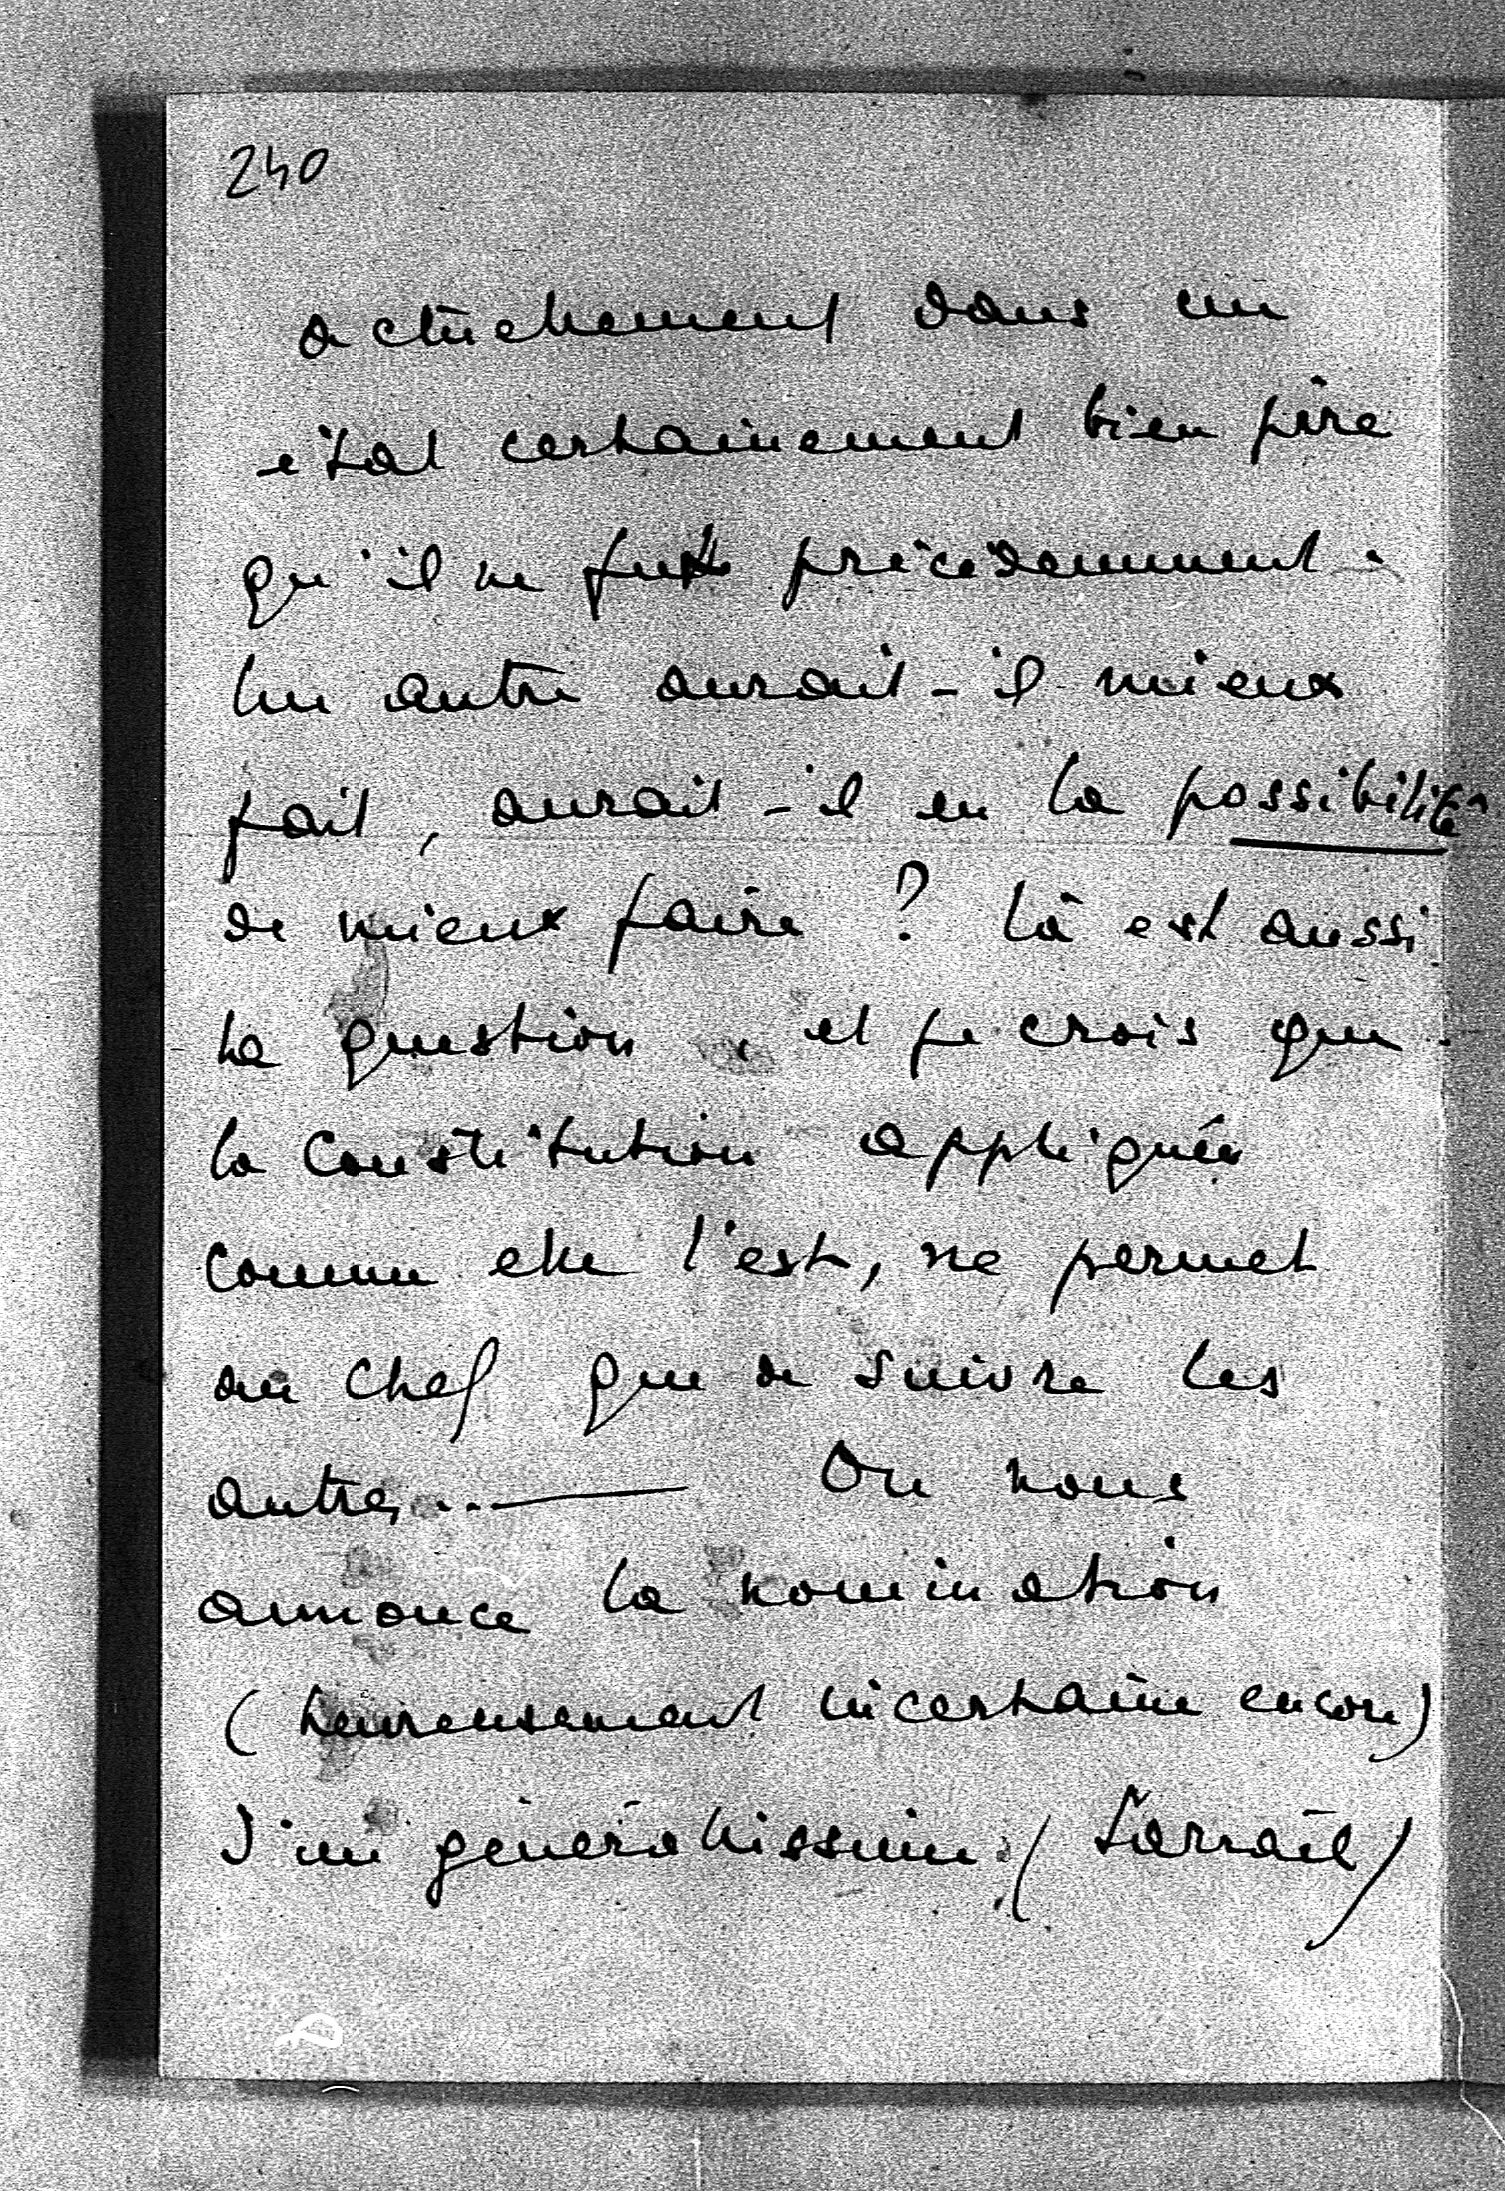 240
actuellement dans un
état certainement bien pire
qu'il ne fut précédemment.
Un autre aurait-il mieux
fait, aurait-il eu la possibilité
de mieux faire ? Là est aussi
la question, et je crois que
la Constitution appliquée
comme elle l'est, ne permet
au chef que de suivre les
autres...— On nous
annonce la nomination
(heureusement incertaine encore)
d'un généralissime (Sarrail)